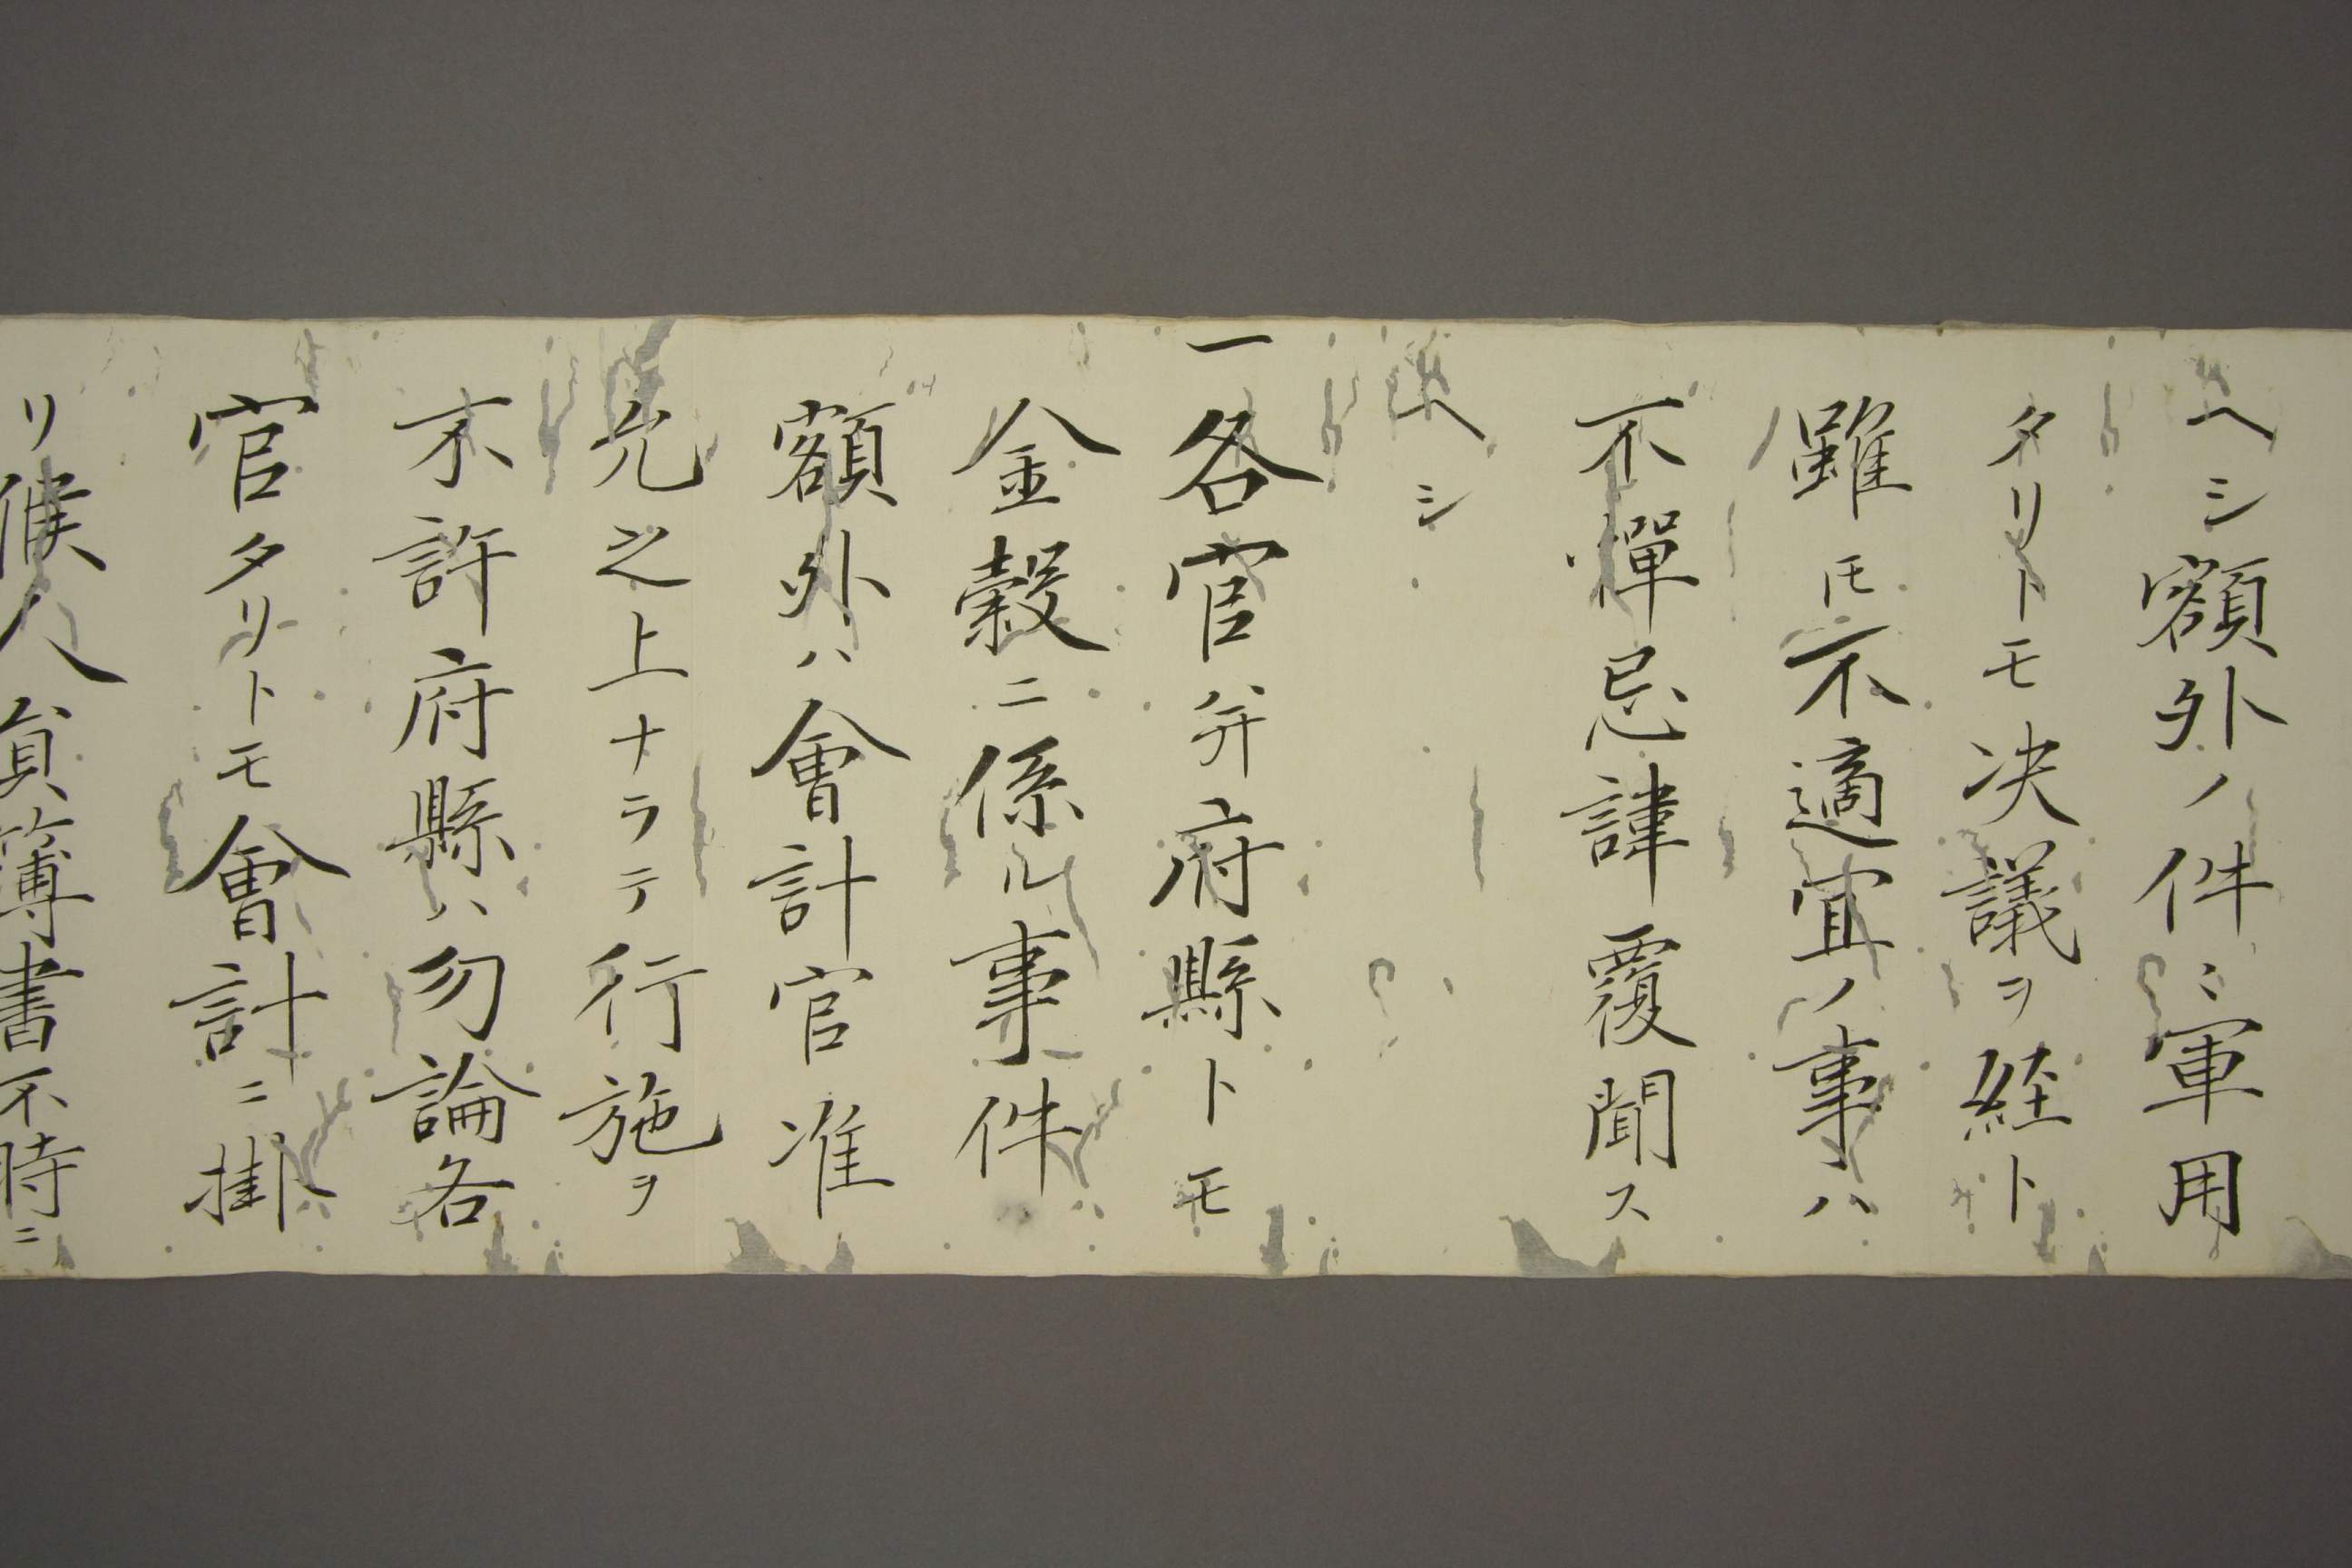 ヘシ額外ノ件ニ軍用
タリトモ决議ヲ経ト
雖モ不適宜ノ事ハ
不憚忌諱覆聞ス
ヘシ
一各官并府縣トモ
金穀ニ係ル事件
額外ハ會計官准
允之上ナラテ行施ヲ
不許府縣ハ勿論各
官タリトモ會計ニ掛
リ候人員簿書不時ニ